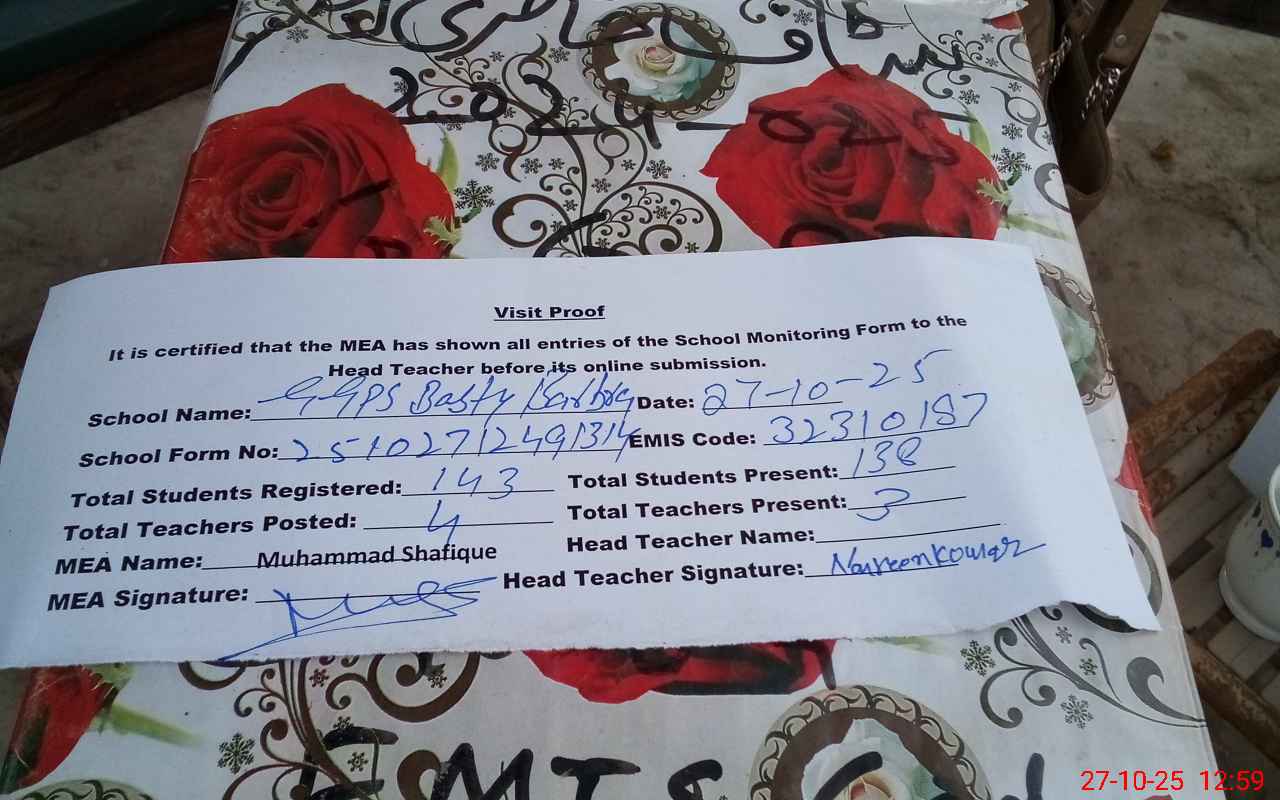 2024-025
Visit Proof
It is certified that the MEA has shown all entries of the School Monitoring Form to the
Head Teacher before its online submission.
School Name: GGPS Basty Date: 27-10-25
School Form No: 25102712491314 EMIS Code: 32310187
Total Students Registered: 143 Total Students Present: 138
Total Teachers Posted: 4 Total Teachers Present: 3
MEA Name: Muhammad Shafique Head Teacher Name:
MEA Signature: Head Teacher Signature:
EMIS
27-10-25 12:59